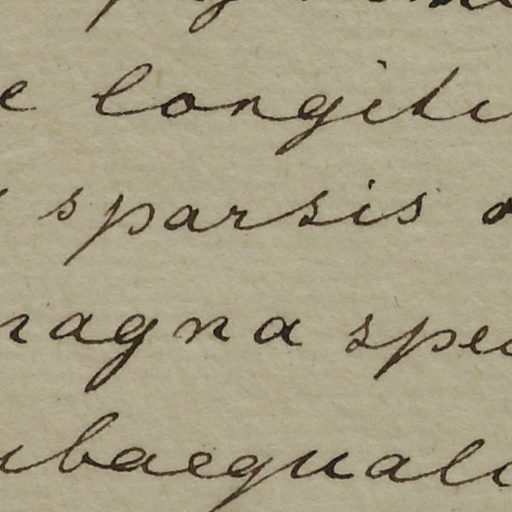 e longiti
sparsis
magna spec
ubaequali